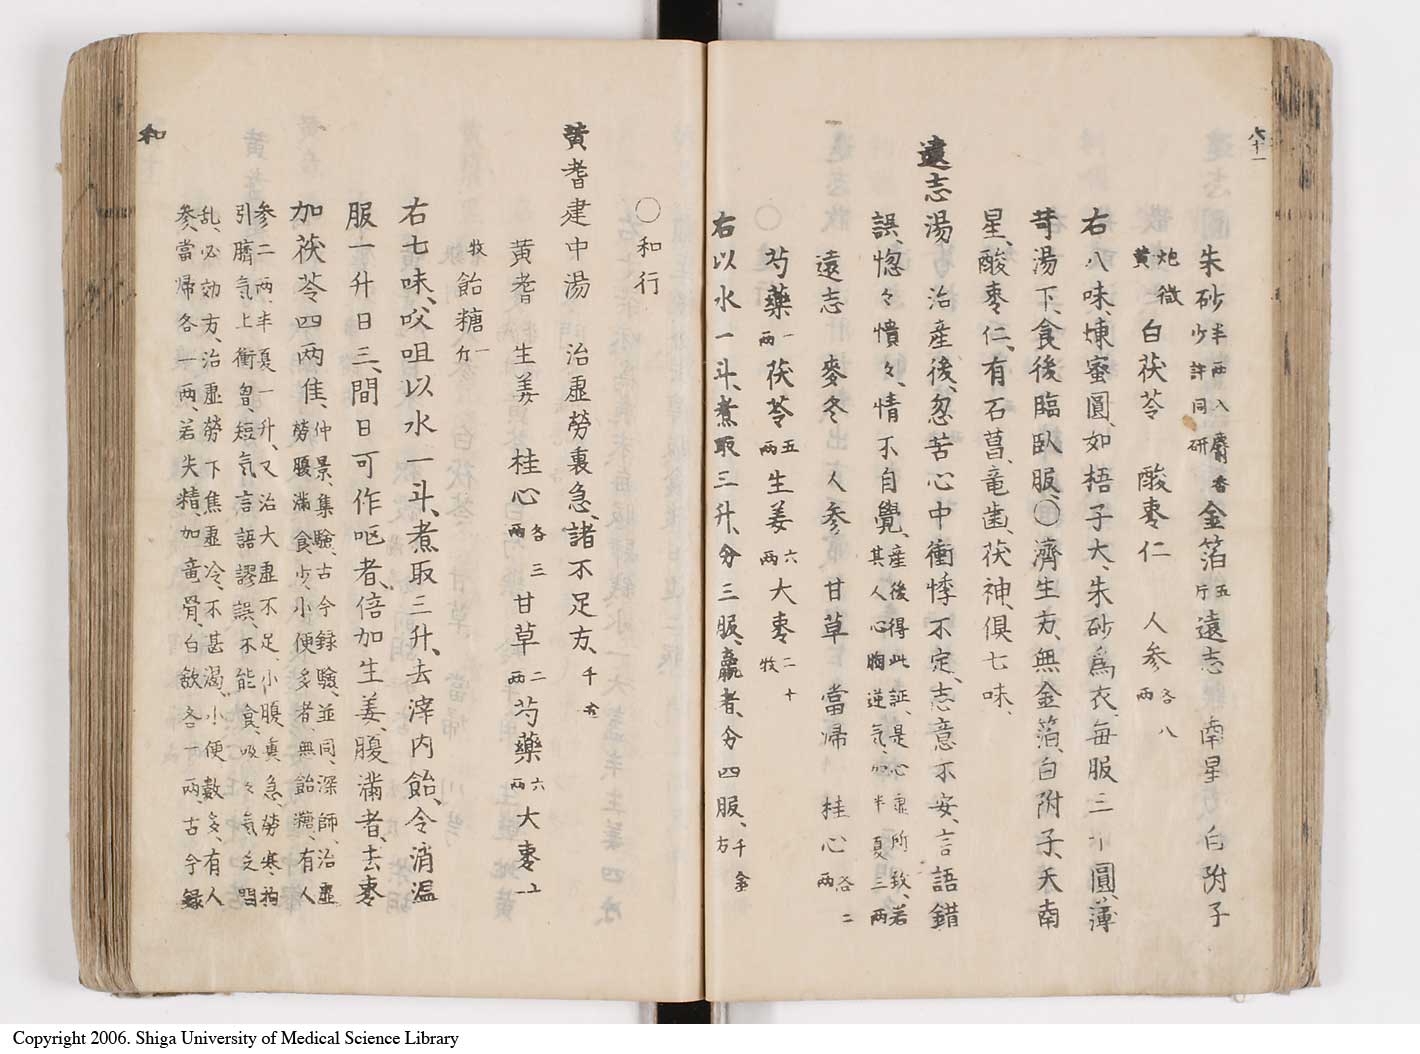 六十一
朱砂半兩入麝香少許同研金箔五片遠志南星白附子
炮微黄白茯苓酸棗仁人参各八兩
右八味、煉蜜圓、如梧子大、朱砂爲衣、毎服三十圓、薄
苛湯下、食後臨臥服、〇濟生方、無金箔、白附子、天南
星、酸棗仁、有石菖、竜歯、茯神、倶七味、
遠志湯治産後、忽苦心中衝悸不定、志意不安、言語錯
誤、惚々憒々、情不自覺、産後得此証、是心虚所致、若其人心胸逆気、加半夏三兩
遠志麥冬人参甘草當帰桂心各二兩
芍藥一兩茯苓五兩生姜六兩大棗二十枚
右以水一斗、煮取三升、分三服、羸者、分四服、千金方
〇和行
黄耆建中湯治虚勞裏急、諸不足方、千金
黄耆生姜桂心各三兩甘草二兩芍藥六兩大棗十二
枚飴糖一斤
右七味、㕮咀以水一斗、煮取三升、去滓内飴、令消温
服一升日三、間日可作嘔者、倍加生姜、腹満者、去棗
加茯苓四兩佳、仲景、集驗、古今録驗、並同、深師、治虚勞腹滿食少、小便多者、無飴糖、有人
参二兩、半夏一升、又治大虚不足、小腹裏急、勞寒拘引臍気上衝胷、短気言語謬誤、不能食、吸々気乏悶
乱、必効方、治虚勞下焦虚冷、不甚渇、小便數多、有人参、當帰各一兩、若失精加竜骨、白斂各一兩、古今録
和
Copyright 2006. Shiga University of Medical Science Library